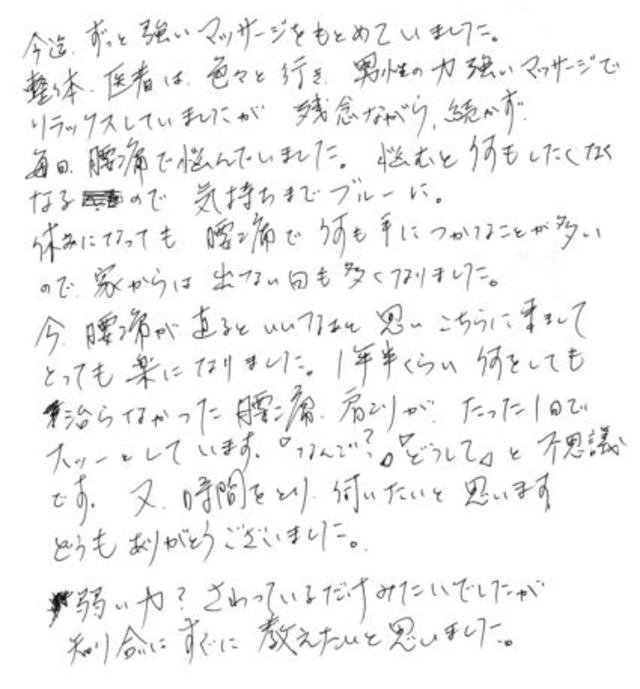 今迄、ずっと強いマッサージをもとめていました。
整体、医者は、色々と行き、男性の力強いマッサージで
リラックスしていましたが 残念ながら、続かず、
毎日、腰痛で悩んでいました。悩むと何もしたくなく
なるので 気持ちまでブルーに。
休みになっても 腰痛で何も手につかなることが多い
ので、家からは出ない日も多くなりました。
今、腰痛が直るといいなあと思いこちらに来まして
とっても楽になりました。1年半くらい何をしても
治らなかった腰痛、肩こりが、たった1日で
スッーとしています。『なんで?』『どうして』と不思議
です。又、時間をとり、伺いたいと思います
どうもありがとうございました。
弱い力?さわっているだけみたいでしたが
知り合いにすぐに教えたいと思いました。